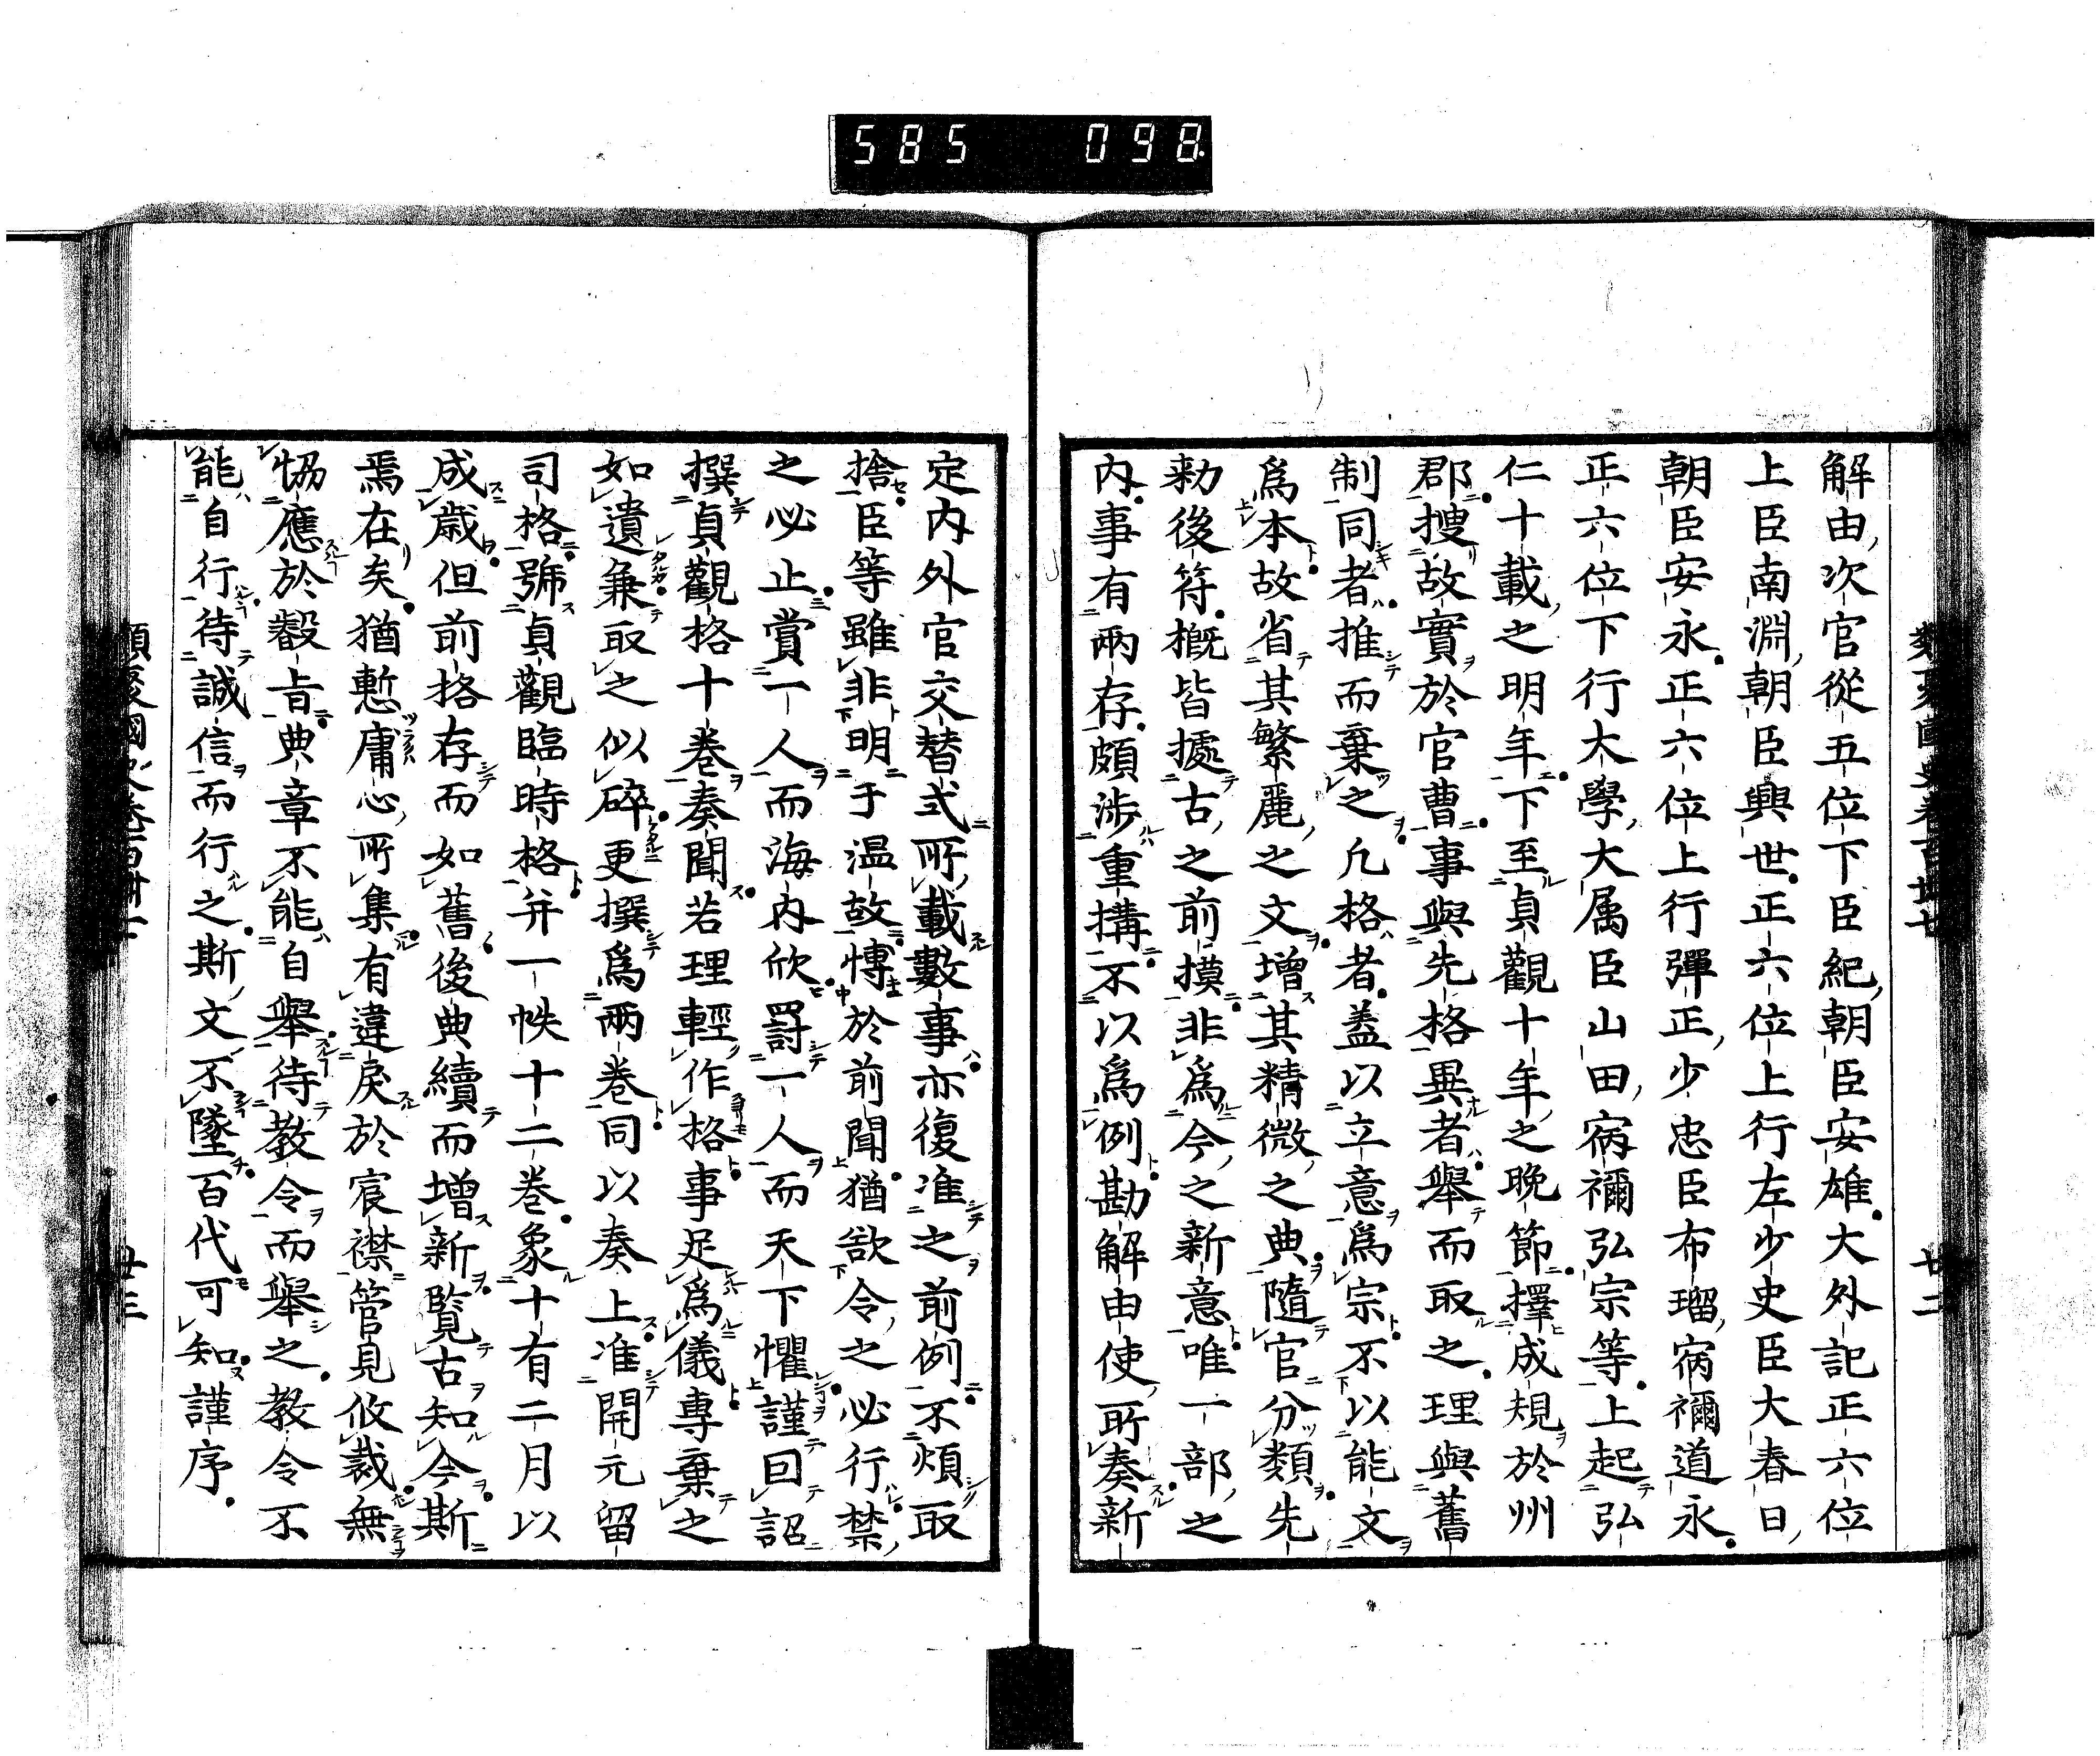 585 098
解由次官從五位下臣紀朝臣安雄大外記正六位
上臣南淵朝臣興世正六位上行左少史臣大春日
朝臣安永正六位上行彈正少忠臣布瑠宿禰道永
正六位下行大學大属臣山田宿禰弘宗等上起弘
仁十載之明年下至貞觀十年之晚節擇成規於州
郡搜故實於官曹事與先格異者舉而取之理與舊
制同者推而棄之凢格者蓋以立意爲宗不以能文
爲本故省其繁麗之文增其精微之典隨官分類先
勅後符概皆據古之前摸非爲今之新意唯一部之
內事有兩存頗渉重搆不以爲例勘解由使所奏新
定内外官交替式所載數事亦復准之前例不煩取
捨臣等雖非明于温故慱於前聞猶欲令之必行禁
之必止賞一人而海内欣罸一人而天下懼謹囙詔
撰貞觀格十卷奏聞若理輕作格事足爲儀專棄之
如遺兼取之似碎更撰爲兩卷同以奏上准開元留
司格號貞觀臨時格并一帙十二卷象十有二月以
成歳但前格存而如舊後典續而增新覧古知今斯
焉在矣猶慙庸心所集有違戾於宸襟管見攸裁無
恊應於叡旨典章不能自舉待教令而舉之教令不
能自行待誠信而行之斯文不墜百代可知謹序